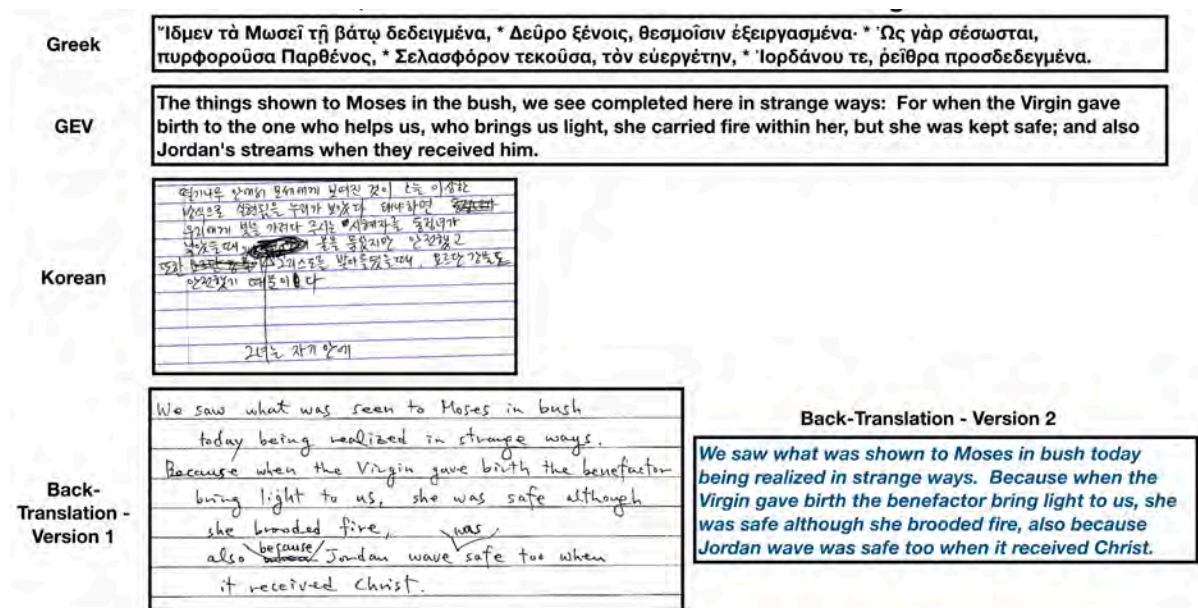 Greek
Ἴδμεν τὰ Μωσεῖ τῇ βάτῳ δεδειγμένα, * Δεῦρο ξένοις, θεσμοῖσιν ἐξειργασμένα· * Ὡς γὰρ σέσωσται,
πυρφοροῦσα Παρθένος, * Σελασφόρον τεκοῦσα, τὸν εὐεργέτην, * Ἰορδάνου τε, ῥεῖθρα προσδεδεγμένα.
GEV
The things shown to Moses in the bush, we see completed here in strange ways: For when the Virgin gave
birth to the one who helps us, who brings us light, she carried fire within her, but she was kept safe; and also
Jordan's streams when they received him.
Korean
떨기나무 안에서 모세에게 보여진 것이 오늘 이상한
방식으로 실현됨을 우리가 보았다 왜냐하면
우리에게 빛을 가져다 주시는 시혜자를 동정녀가
낳았을때 불을 품었지만 안전했고
또한 그리스도를 받아들였을때, 요르단 강물도
안전했기 때문이다
그녀는 자기 안에
Back-
Translation -
Version 1
We saw what was seen to Moses in bush
today being realized in strange ways.
Because when the Virgin gave birth the benefactor
bring light to us, she was safe although
she brooded fire, was
also because Jordan wave safe too when
it received Christ.
Back-Translation - Version 2
We saw what was shown to Moses in bush today
being realized in strange ways. Because when the
Virgin gave birth the benefactor bring light to us, she
was safe although she brooded fire, also because
Jordan wave was safe too when it received Christ.